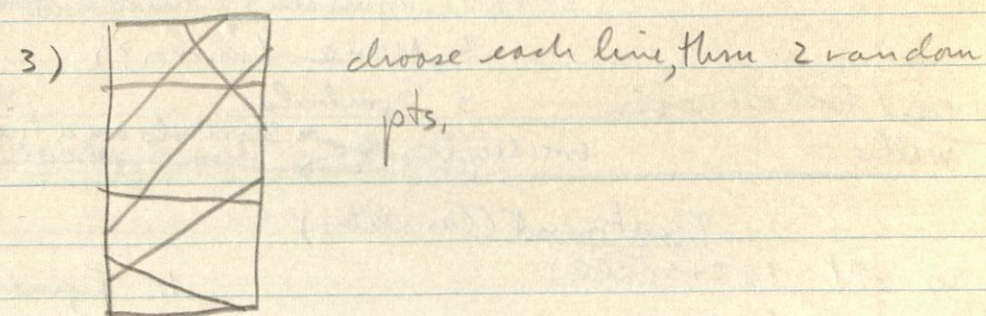 3) choose each line, thru 2 random
pts,